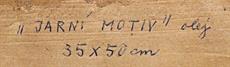 „JARNÍ MOTIV" olej
35x50cm